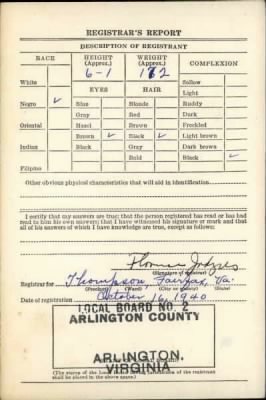 REGISTRAR'S REPORT
DESCRIPTION OF REGISTRANT
RACE
HEIGHT (Approx.)
WEIGHT (Approx.)
COMPLEXION
6-1
172
White
Sallow
Light
EYES
HAIR
Negro ✓
Blue
Blonde
Ruddy
Gray
Red
Dark
Oriental
Hazel
Brown
Freckled
Brown ✓
Black ✓
Light brown
Indian
Black
Gray
Dark brown
Bald
Black ✓
Filipino
Other obvious physical characteristics that will aid in identification
I certify that my answers are true; that the person registered has read or has had
read to him his own answers; that I have witnessed his signature or mark and that
all of his answers of which I have knowledge are true, except as follows:
(Signature of registrar)
Registrar for Thompson, Fairfax, Va.
(Precinct) (Ward) (City or county) (State)
Date of registration October 16, 1940
LOCAL BOARD NO. 2
ARLINGTON COUNTY
ARLINGTON,
VIRGINIA
(The stamp of the Local Board of the registrant
shall be placed in the above space.)